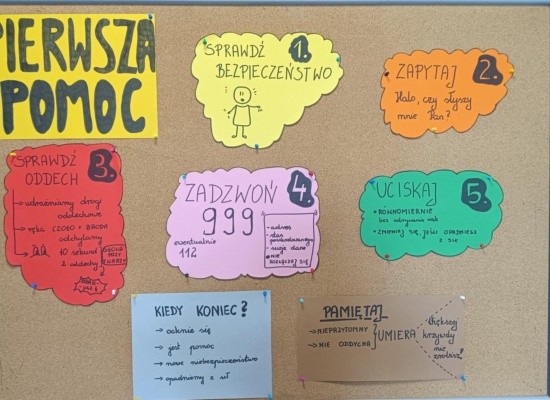 PIERWSZA
POMOC
1.
SPRAWDŹ
BEZPIECZEŃSTWO
2.
ZAPYTAJ
Halo, czy słyszy
mnie Pan?
3.
SPRAWDŹ
ODDECH
→ udrażniamy drogi
oddechowe
→ ręka CZOŁO + BRODA
odchylamy
→ 10 sekund
2 oddechy
4.
ZADZWOŃ
999
ewentualnie
112
- adres
- stan
poszkodowanego
- swoje dane
NIE
ROZŁĄCZAJ SIĘ
5.
UCISKAJ
• RÓWNOMIERNIE
bez odrywania rąk
• ZMIENIAJ SIĘ, JEŚLI OPADNIESZ
Z SIŁ
KIEDY KONIEC?
→ ocknie się
→ jest pomoc
→ nowe niebezpieczeństwo
→ opadniemy z sił
PAMIĘTAJ
→ NIEPRZYTOMNY
→ NIE ODDYCHA
UMIERA
Większej
krzywdy
nie
zrobisz!